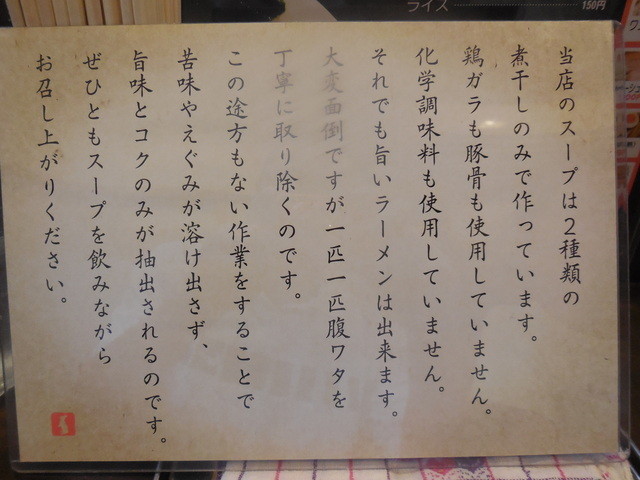 ライス 150円
当店のスープは2種類の
煮干しのみで作っています。
鶏ガラも豚骨も使用していません。
化学調味料も使用していません。
それでも旨いラーメンは出来ます。
大変面倒ですが一匹一匹腹ワタを
丁寧に取り除くのです。
この途方もない作業をすることで
苦味やえぐみが溶け出さず、
旨味とコクのみが抽出されるのです。
ぜひともスープを飲みながら
お召し上がりください。